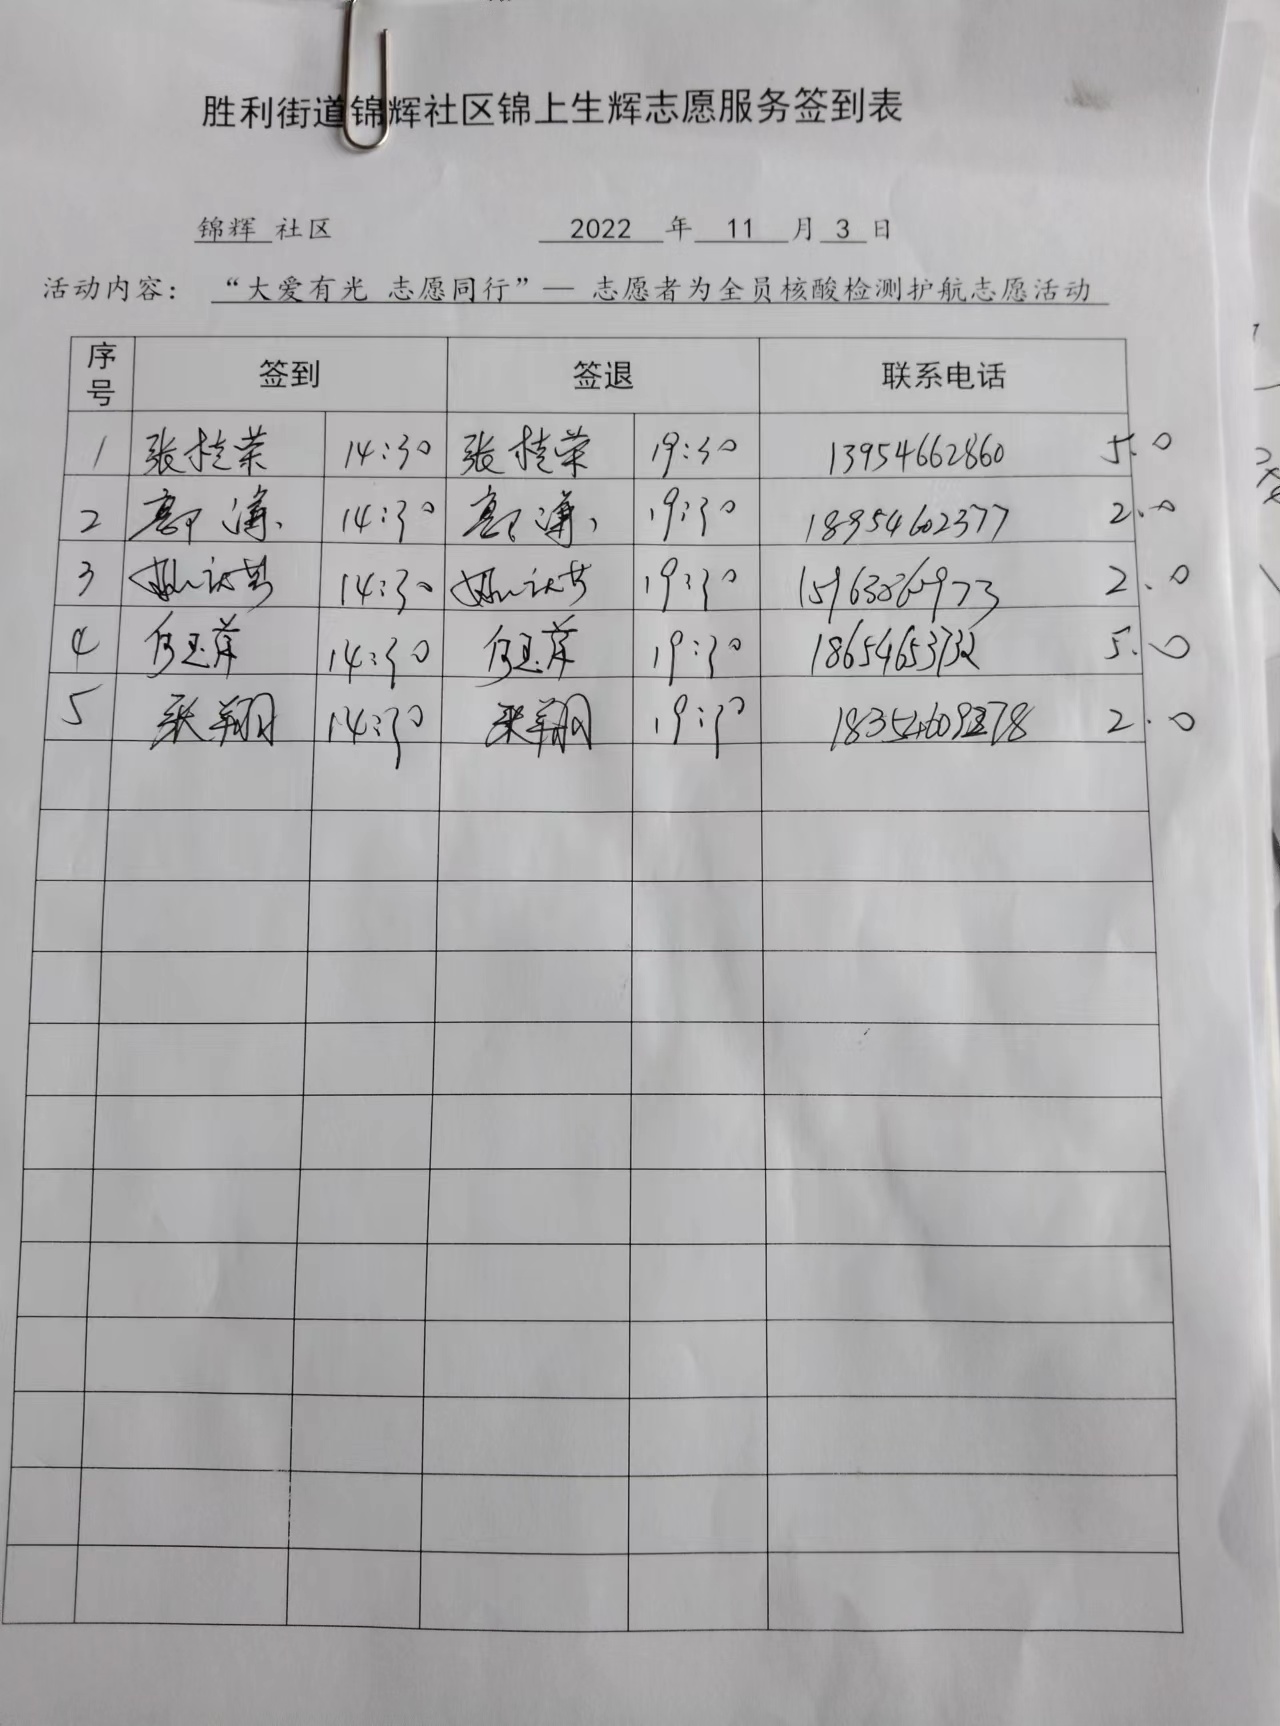 胜利街道锦辉社区锦上生辉志愿服务签到表
锦辉 社区 2022 年 11 月 3 日
活动内容: “大爱有光 志愿同行”— 志愿者为全员核酸检测护航志愿活动
序号 签到 签退 联系电话
1 张桂荣 14:30 张桂荣 19:30 13954662860 5.0
2 14:30 19:30 18954602377 2.0
3 14:30 19:30 2.0
4 何玉萍 14:30 何玉萍 19:30 5.0
5 张翔 14:30 张翔 19:30 2.0